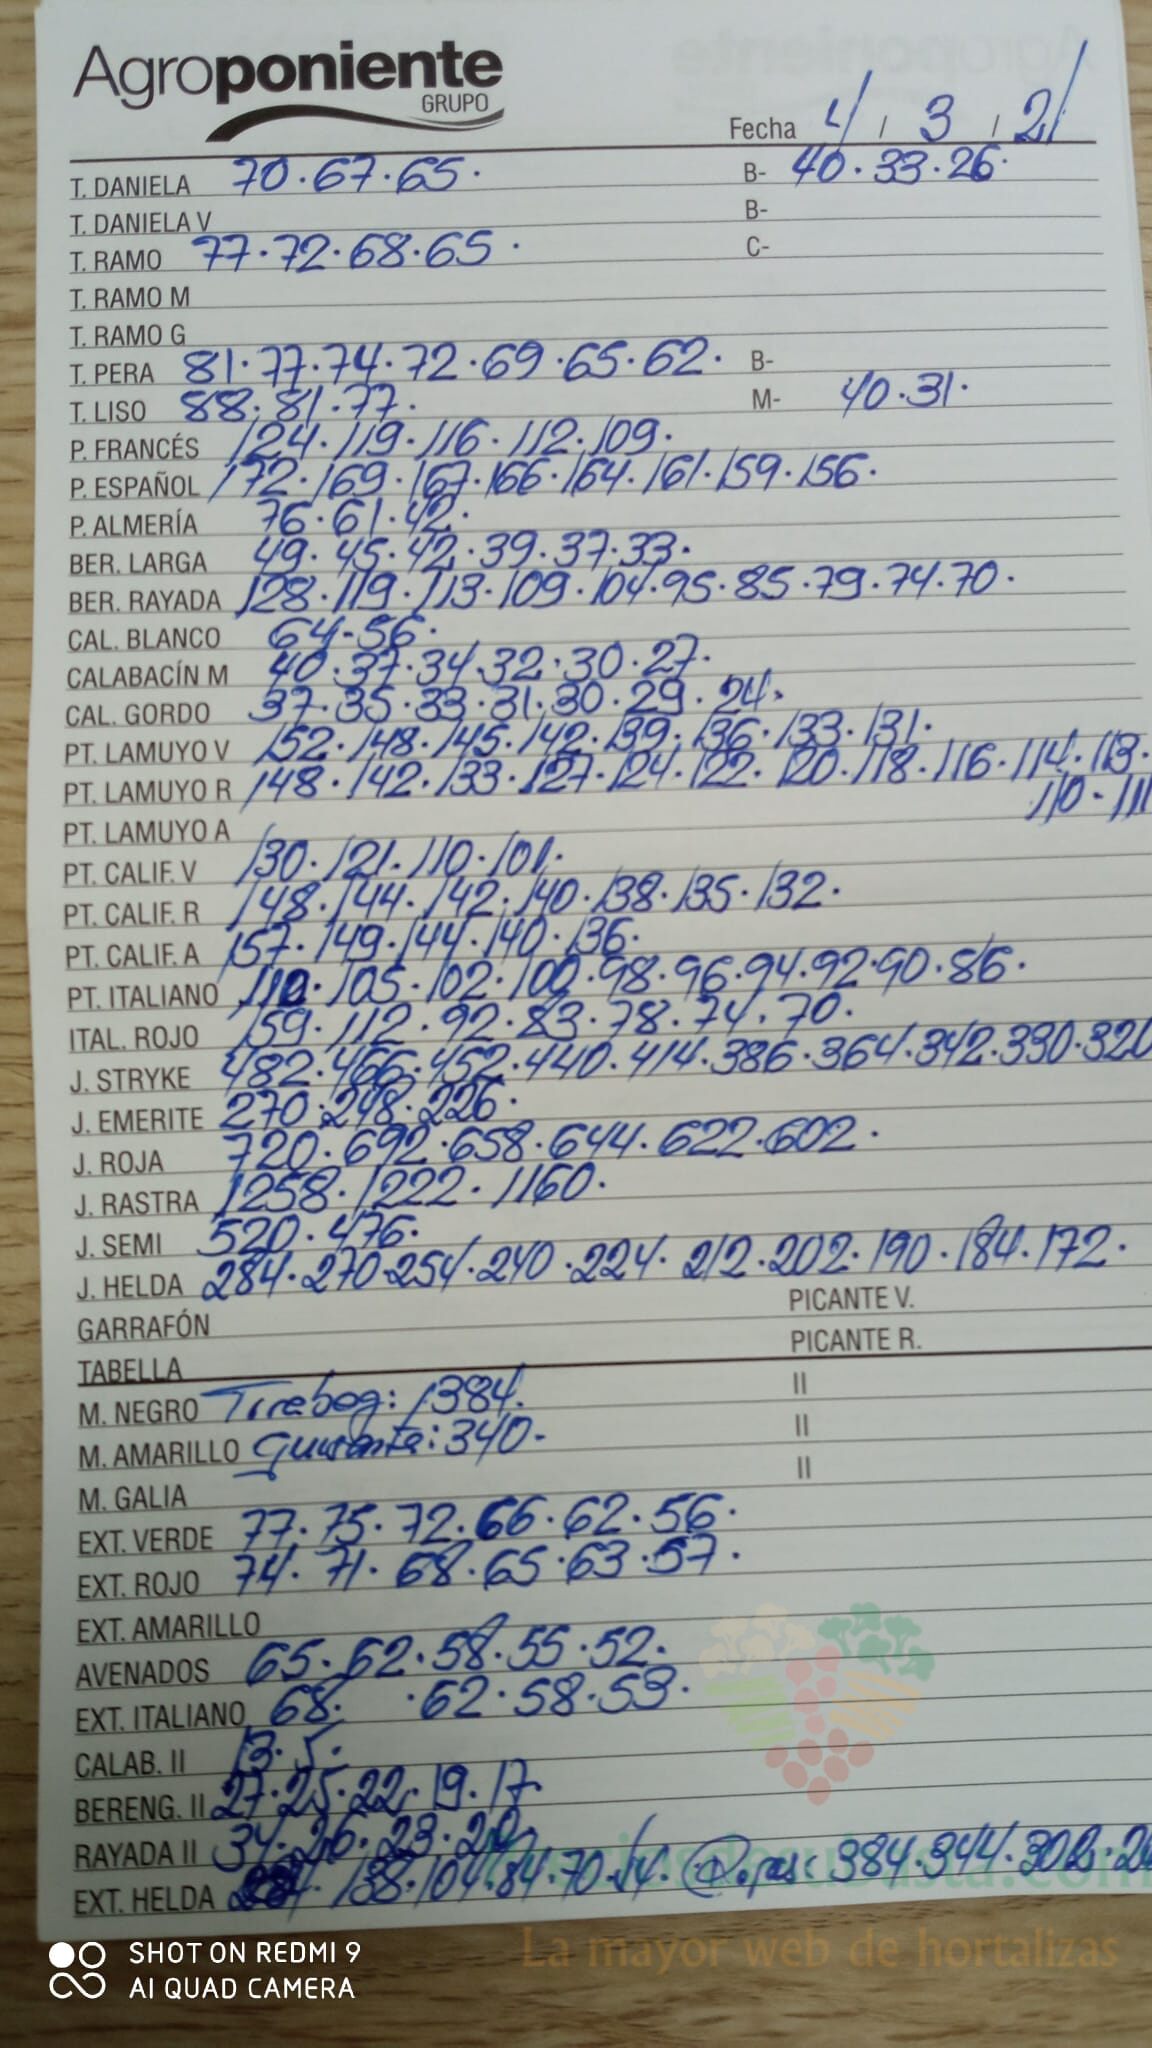 Agroponiente
GRUPO
Fecha 4 / 3 / 21
T. DANIELA 70·67·65· B- 40·33·26·
T. DANIELA V B-
T. RAMO 77·72·68·65· C-
T. RAMO M
T. RAMO G
T. PERA 81·77·74·72·69·65·62· B-
T. LISO 88·81·77· M- 40·31·
P. FRANCÉS 124·119·116·112·109·
P. ESPAÑOL 172·169·167·166·164·161·159·156·
P. ALMERÍA 76·61·42·
BER. LARGA 49·45·42·39·37·33·
BER. RAYADA 128·119·113·109·104·95·85·79·74·70·
CAL. BLANCO 64-56·
CALABACÍN M 40·37·34·32·30·27·
CAL. GORDO 37·35·33·31·30·29·24·
PT. LAMUYO V 152·148·145·142·139·136·133·131·
PT. LAMUYO R 148·142·133·127·124·122·120·118·116·114·113·
110·111
PT. LAMUYO A
PT. CALIF. V 130·121·110·101·
PT. CALIF. R 148·144·142·140·138·135·132·
PT. CALIF. A 157·149·144·140·136·
PT. ITALIANO 110·105·102·100·98·96·94·92·90·86·
ITAL. ROJO 159·112·92·83·78·74·70·
J. STRYKE 482·466·452·440·414·386·364·342·330·320
J. EMERITE 270·248·226·
J. ROJA 720·692·658·644·622·602·
J. RASTRA 1258·1222·1160·
J. SEMI 520·476·
J. HELDA 284·270·254·240·224·212·202·190·184·172·
GARRAFÓN PICANTE V.
TABELLA PICANTE R.
M. NEGRO : 1384. II
M. AMARILLO : 340- II
M. GALIA II
EXT. VERDE 77·75·72·66·62·56·
EXT. ROJO 74·71·68·65·63·57·
EXT. AMARILLO
AVENADOS 65·62·58·55·52·
EXT. ITALIANO 68· ·62·58·53·
CALAB. II 13·5·
BERENG. II 27·25·22·19·17
RAYADA II 34·26·23·
EXT. HELDA 138·104·84·70· : 384·344·302·
La mayor web de hortalizas
SHOT ON REDMI 9
AI QUAD CAMERA